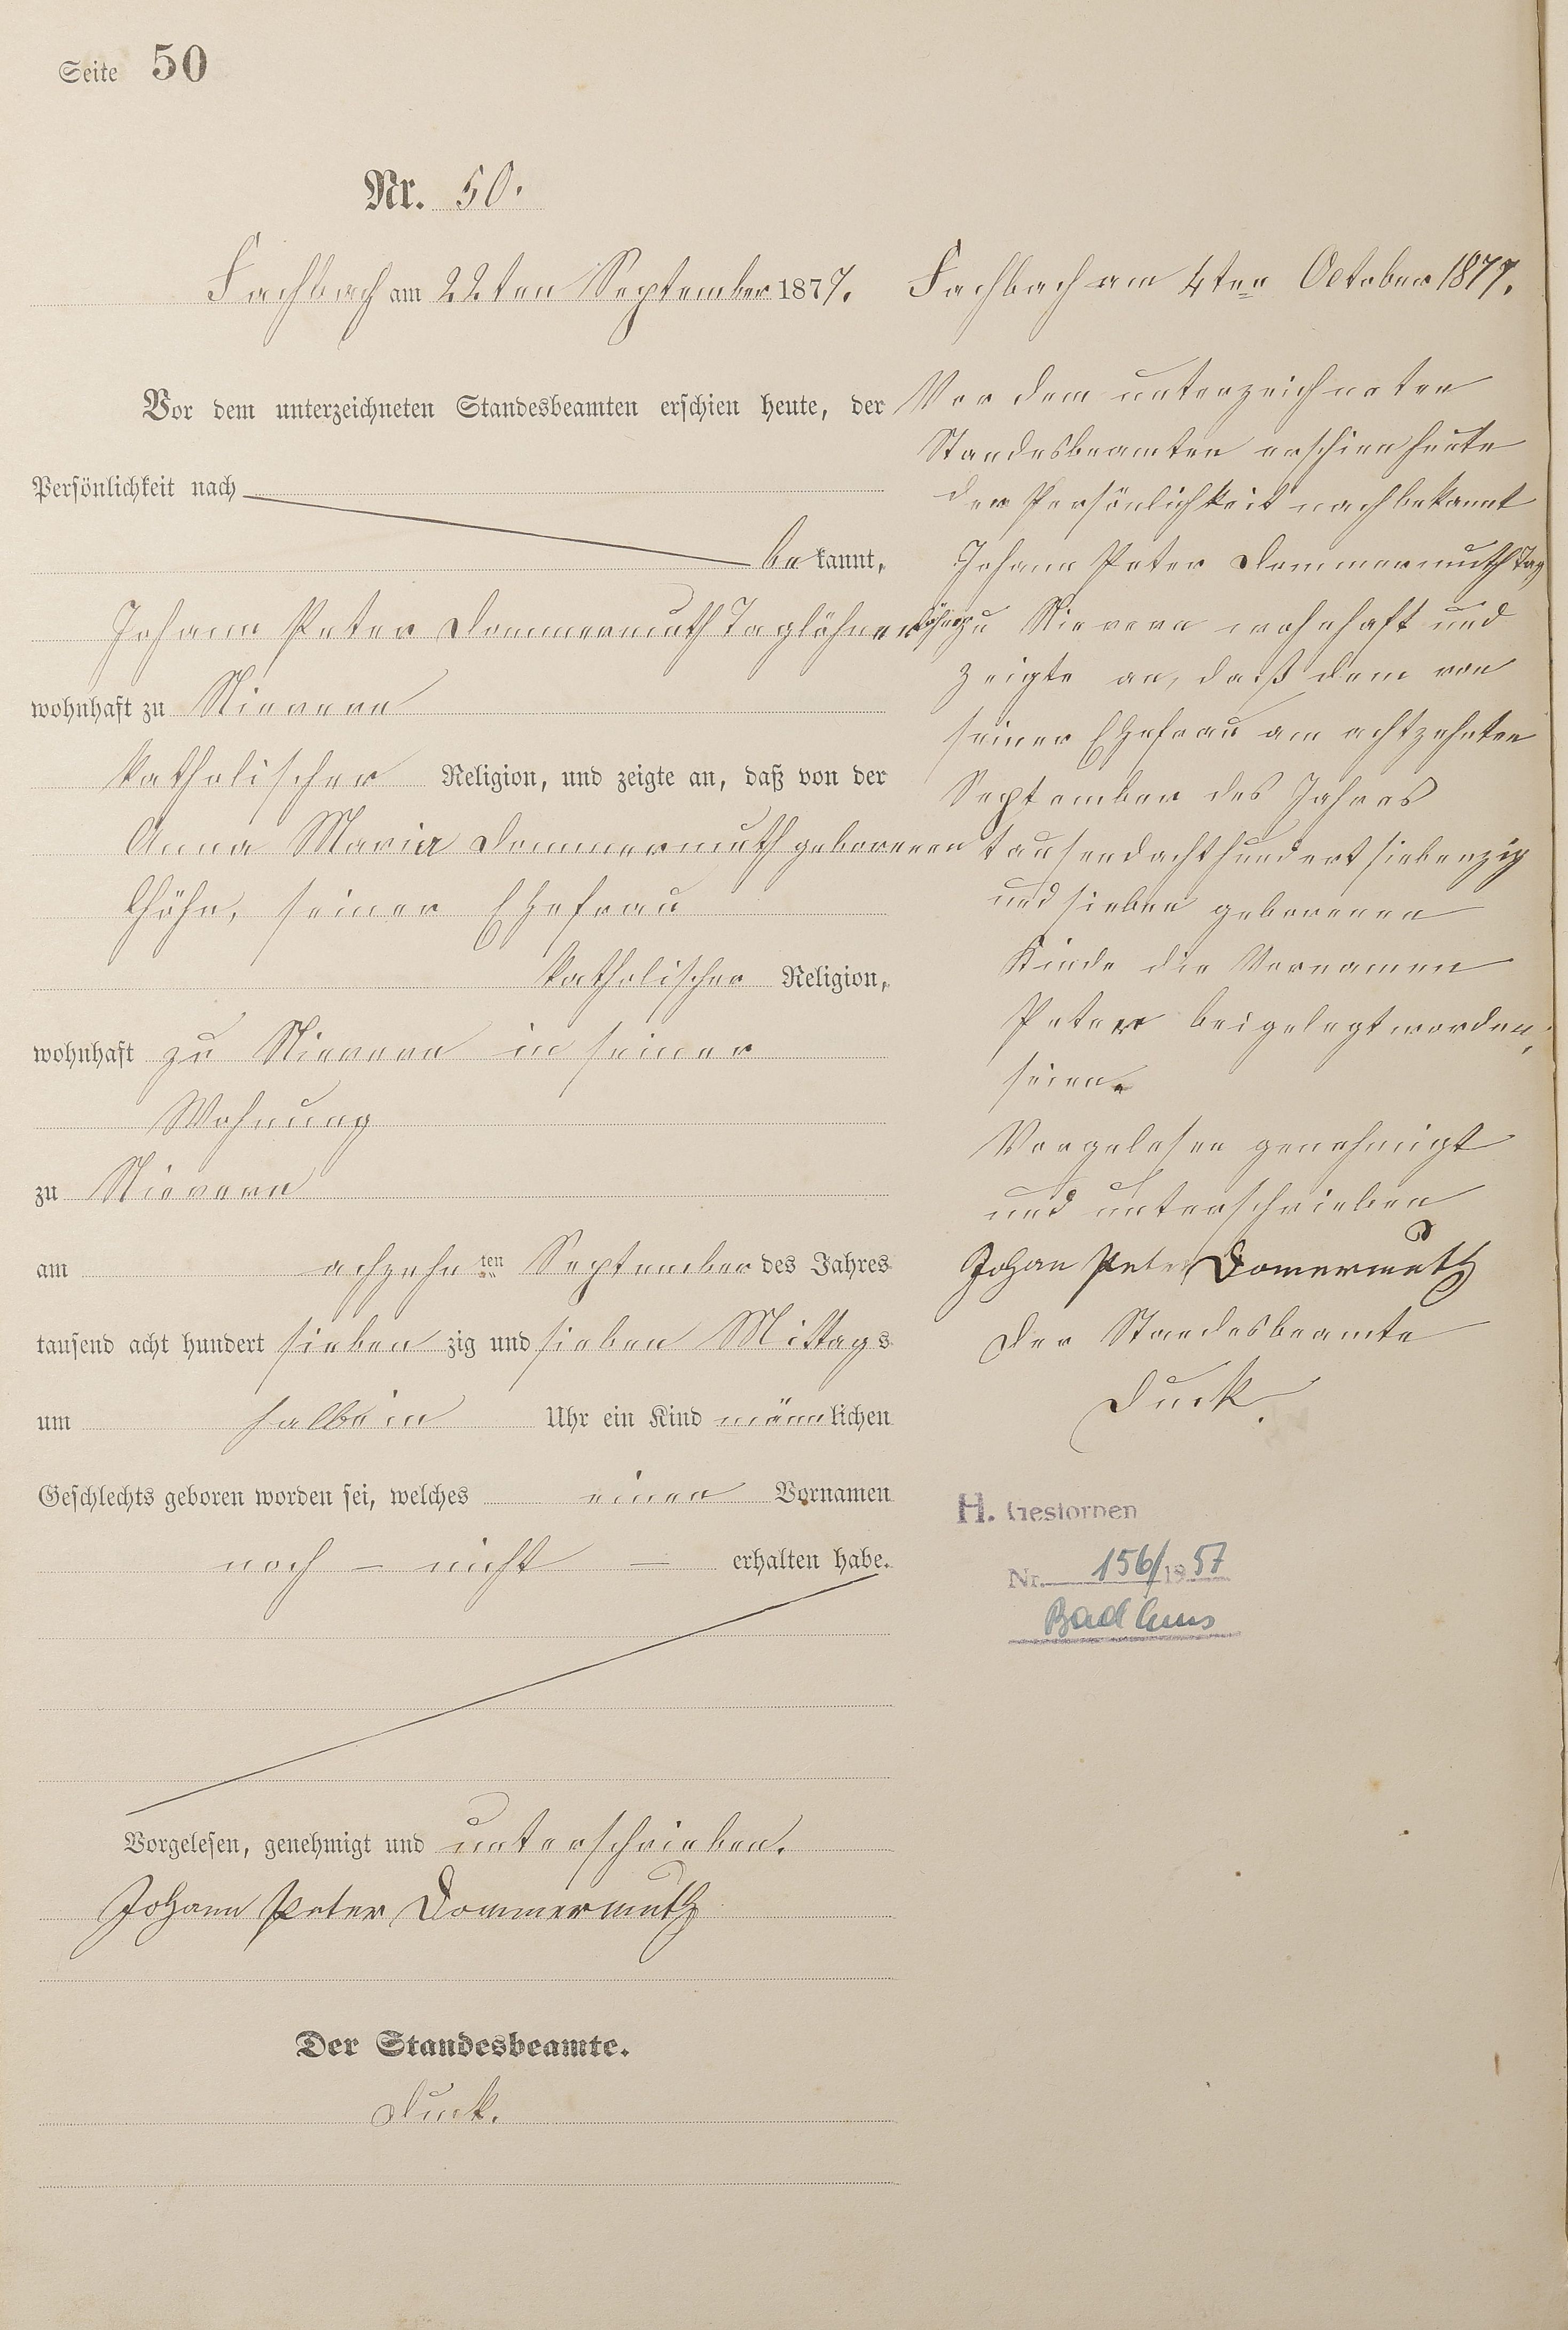 Seite 50
Nr. 50.
Fachbach am 22ten September 1877.
Vor dem unterzeichneten Standesbeamten erschien heute, der
Persönlichkeit nach
bekannt,
Johann Peter Dommermuth Taglöhner
wohnhaft zu Nievern
katholischer Religion, und zeigte an, daß von der
Anna Maria Dommermuth geborenen
seiner Ehefrau
katholischer Religion,
wohnhaft zu Nievern in seiner
Wohnung
zu Nievern
am achzehnten September des Jahres
tausend acht hundert siebenzig und sieben Mittags
um halbein Uhr ein Kind männlichen
Geschlechts geboren worden sei, welches einen Vornamen
noch – nicht – erhalten habe.
Vorgelesen, genehmigt und unterschrieben.
Johann Peter Dommermuth
Der Standesbeamte.
Duck.
Fachbach am 4ten October 1877.
Vor dem unterzeichneten
Standesbeamten erschien heute
der Persönlichkeit nach bekannt
Johann Peter Dommermuth Tag
löhner zu Nievern wohnhaft und
zeigte an, daß dem von
seiner Ehefrau am achtzehnten
September des Jahres
tausendachthundert siebenzig
und sieben geborenen
Kinde die Vornamen
Peter beigelegt worden,
seien.
Vorgelesen genehmigt
und unterschrieben
Johan Peter Domermuth
Der Standesbeamte
Duck.
H. Gestorben
Nr. 156/1957
Bad Ems